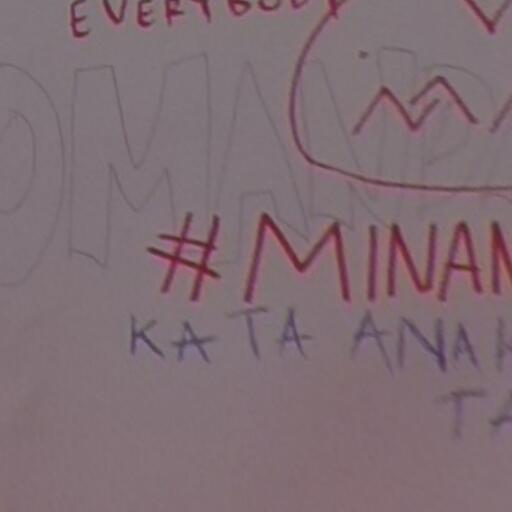 EVERYBOD
OMAN
#MINAN
KATA ANAK
TA